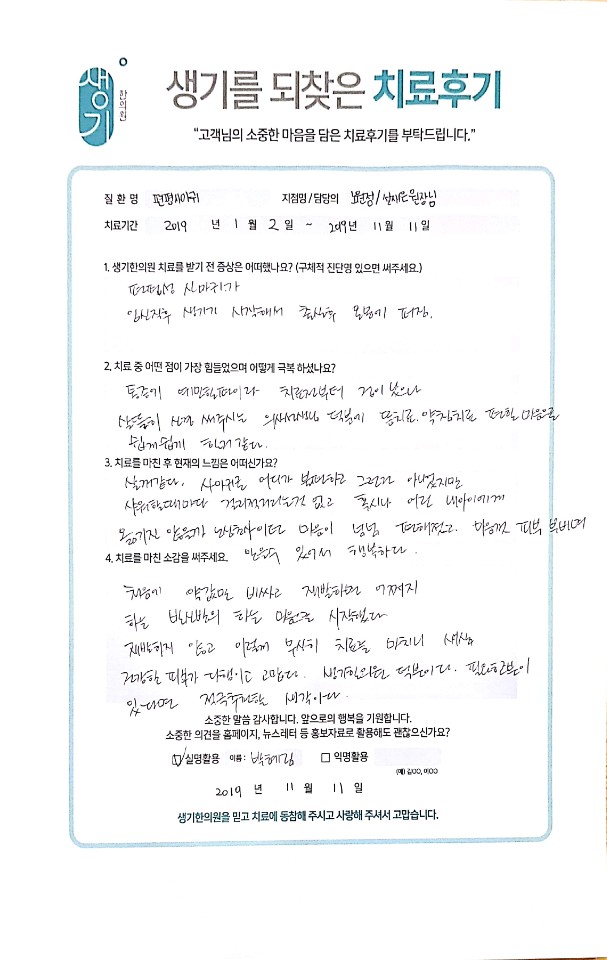 생기
한의원
생기를 되찾은 치료후기
"고객님의 소중한 마음을 담은 치료후기를 부탁드립니다."
질 환 명 편평사마귀 지점명/담당의 노원점/ 원장님
치료기간 2019 년 1 월 2 일 ~ 2019년 11월 11일
1. 생기한의원 치료를 받기 전 증상은 어떠했나요? (구체적 진단명 있으면 써주세요.)
편평성 사마귀가
임신직후 생기기 시작해서 출산후 온몸에 퍼짐.
2. 치료 중 어떤 점이 가장 힘들었으며 어떻게 극복 하셨나요?
통증에 예민한편이라 치료전부터 겁이 났으나
살뜰히 신경 써주시는 의사선생님 덕분에 뜸치료, 약침치료 편한 마음으로
쉽게쉽게 한거같다.
3. 치료를 마친 후 현재의 느낌은 어떠신가요?
살거같다. 사마귀로 어디가 불편하고 그런건 아녔지만
샤워할때마다 거리적거리는것 없고 혹시나 어린 내아이에게
옮기진 않을까 노심초사이던 마음이 넘넘 편해졌고. 마음껏 피부 부비며
4. 치료를 마친 소감을 써주세요. 안을수 있어서 행복하다.
처음에 약값만 비싸고 재발하면 어쩌지
하는 반신반의 하는 마음으로 시작했다
재발하지 않고 이렇게 무사히 치료를 마치니 새삼
건강한 피부가 다행이고 고맙다. 생기한의원 덕분이다. 필요한분이
있다면 적극추천할 생각이다.
소중한 말씀 감사합니다. 앞으로의 행복을 기원합니다.
소중한 의견을 홈페이지, 뉴스레터 등 홍보자료로 활용해도 괜찮으신가요?
실명활용 이름: 박혜림 익명활용
(예) 김OO, 이OO
2019 년 11 월 11 일
생기한의원을 믿고 치료에 동참해 주시고 사랑해 주셔서 고맙습니다.